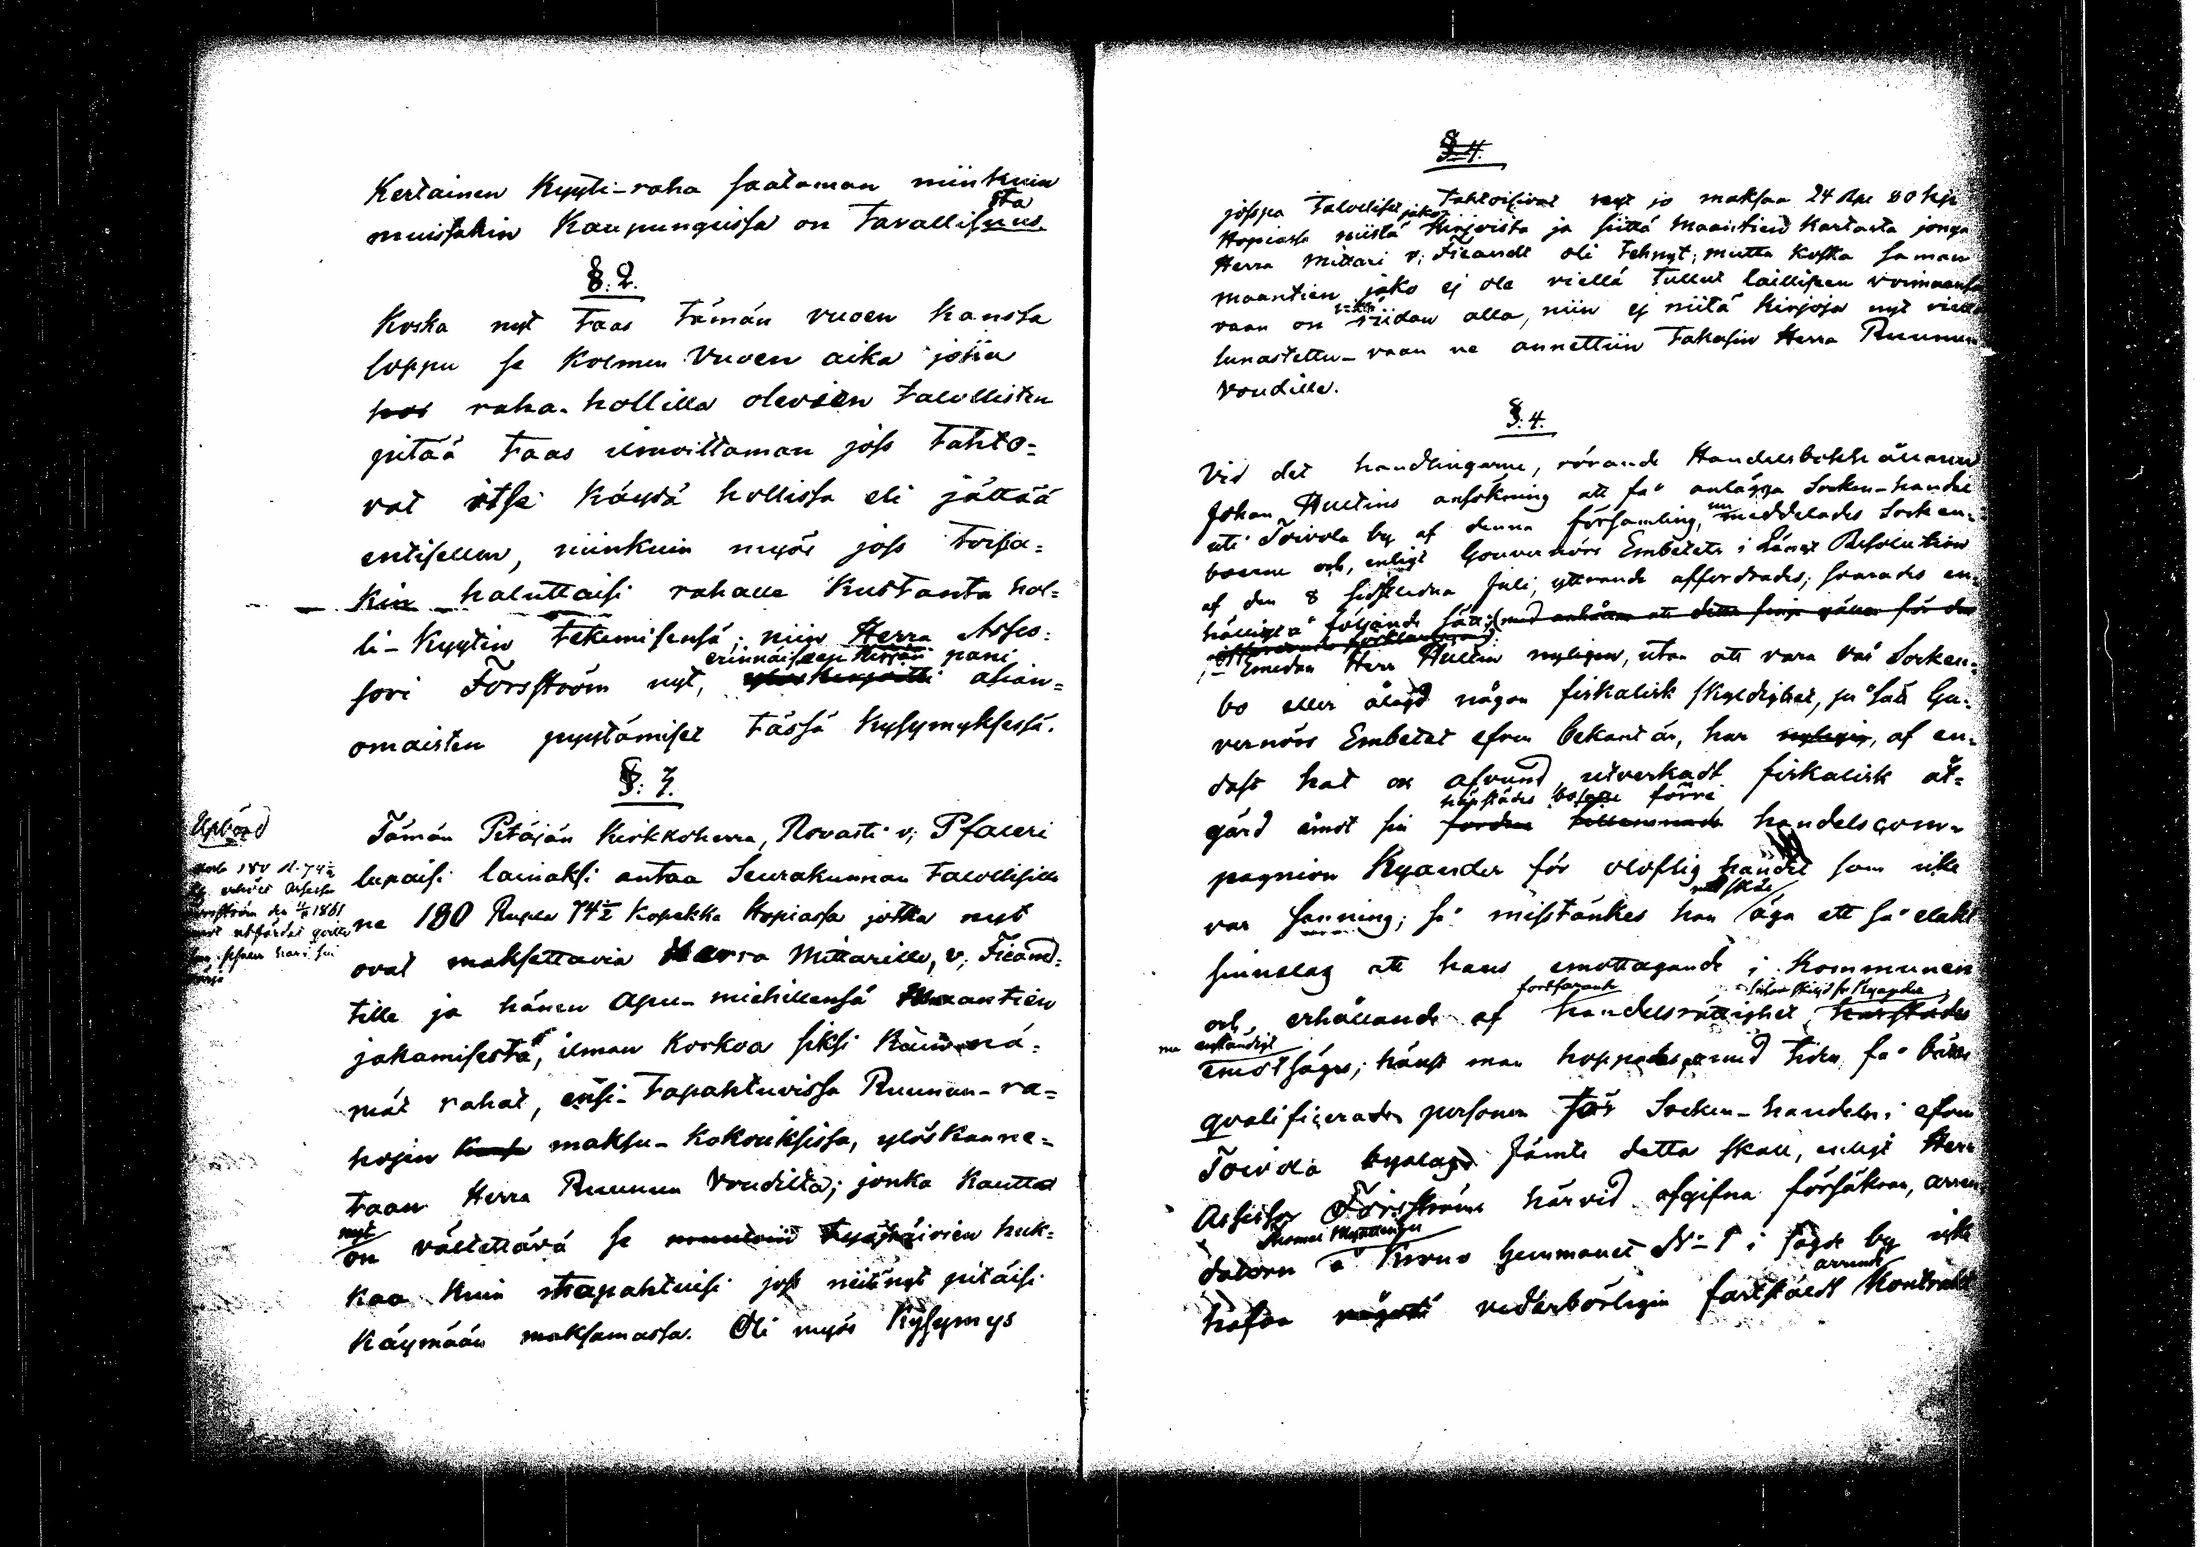 Kertainen Kyyti-raha saataman niinkuin
muissakin Kaupungissa on tavallisuus.
sta
§. 2.
Koska nyt taas tämän vuoen kanssa
loppu se kolmen vuoen aika josta
raha-hollilla olevien talollisten
pitää taas ilmoittaman joss tahto=
vat itse käydä hollissa eli jättää
entisellen, niinkuin myös joss toisia=
kin haluttaisi rahalle kustanta hol=
li-kyytin tekemisensä; niin Herra Asses=
erinnäiseen kirjaan pani
sori Forsström nyt, asian=
omaisten pyytämiset tässä kysymyksessä.
§. 3.
Tämän Pitäjän Kirkkoherra, Rovasti v; Pfaleri
lupaisi lainaksi antaa Seurakunnan talollisille
ne 180 Rupla 74½ kopekka Hopiassa jotka nyt
ovat maksettavia Herra Mittarille, v; Fieand=
tille ja hänen apu-miehillensä Maantien
jakamisesta, ilman korkoa siksi kuin nä=
mät rahat, ensi-tapahtuvissa Ruunun-ra=
hojen maksu-kokouksissa, ylöskanne=
taan Herra Ruunun Voudilta; jonka kautta
nyt
on vältettävä se työpäivien huk=
kaa kuin tapahtuisi joss niitä nyt pitäisi
käymään maksamassa. Oli myös kysymys
Upbörd
180 R. 74½
den 4/ 1861
§. 4.
josspa talolliset tahtoisivat nyt jo maksaa 24 Rpl 80 kp
Hopiassa niistä jako kirjoista ja siitä Maantien kartasta jonga
Herra Mittari v; Fieandt oli tehnyt; mutta koska saman
maantien jako ej ole viellä tullut lailliseen voimaansa
vaan on riidan alla, niin ej niitä kirjoja nyt viellä
lunastettu- vaan ne annettiin takasin Herra Ruunun
Voudille.
§. 4.
Vid det handlingarne, rörande Handelsbokhållaren
Johan Hultins ansökning att få anlägga Socken-handel
uti Toivola by af denna församling, nu meddelades Socken=
boerne och, enligt Gouvernörs Embetets i Länet Resolution
af den 8 sistledna Juli, yttrande affordrades; svarades en=
hälligt å följande sätt:
;- Emedan Herr Hultin nyligen, utan att vara vår Socken=
bo eller ålagd någon fiskalisk skyldighet, på sätt Gu=
vernörs Embetet efven bekant är, har nyligen, af en=
dast hat och afvund, utverkadt fiskalisk åt=
härstädes förre
gärd emot sin handelscom=
pagnion Kyander för oloflig handel som icke
med skäl
var sanning; så misstänkes han äga ett så elakt
sinnelag att hans emottagande i Kommunen
fortfarande
och erhållande af handelsrättighet
enständigt
emotsäges; hälst man hoppades med tiden få bättre
qvalificerade personer för Socken-handeln i efven
Toivola byalag. Jämte detta skall, enligt Herr
Assessor Forsströms härvid afgifna försäkran, arren
datorn å Kirvus hemmanet N:o 1 i sagde by icke
arrende
hafva vederbörligen fastställt Kontrakt